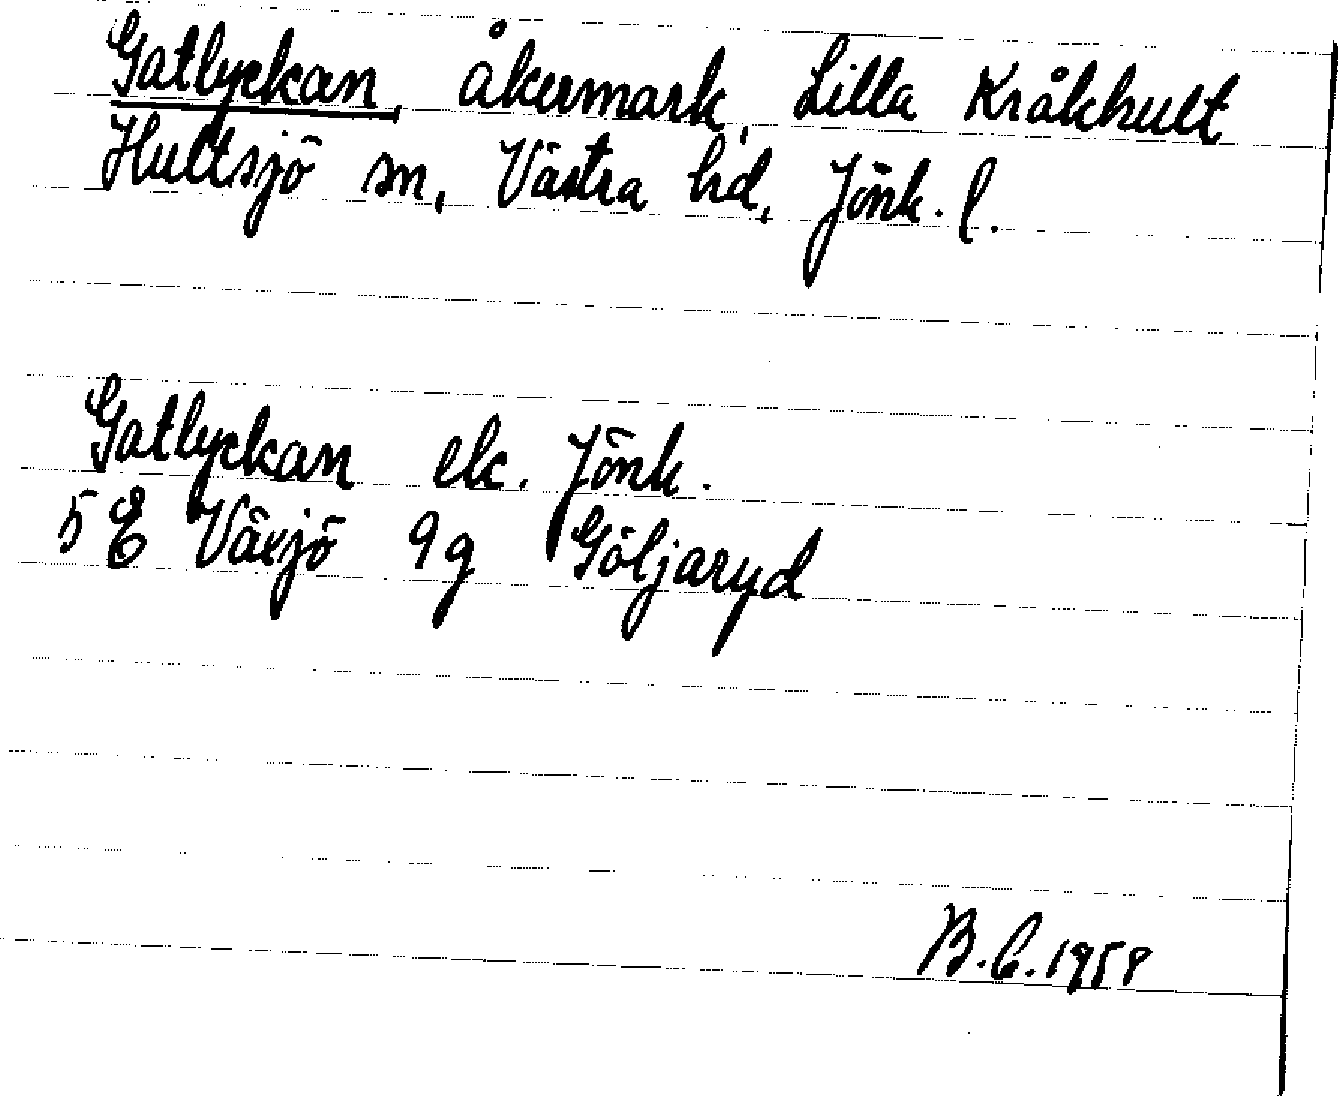 Gatlyckan, åkermark, Lilla Kråkhult
Hultsjö sn, Västra hd, Jönk. l.
Gatlyckan ek. Jönk.
5 E Växjö 9g Göljaryd
B.C. 1958